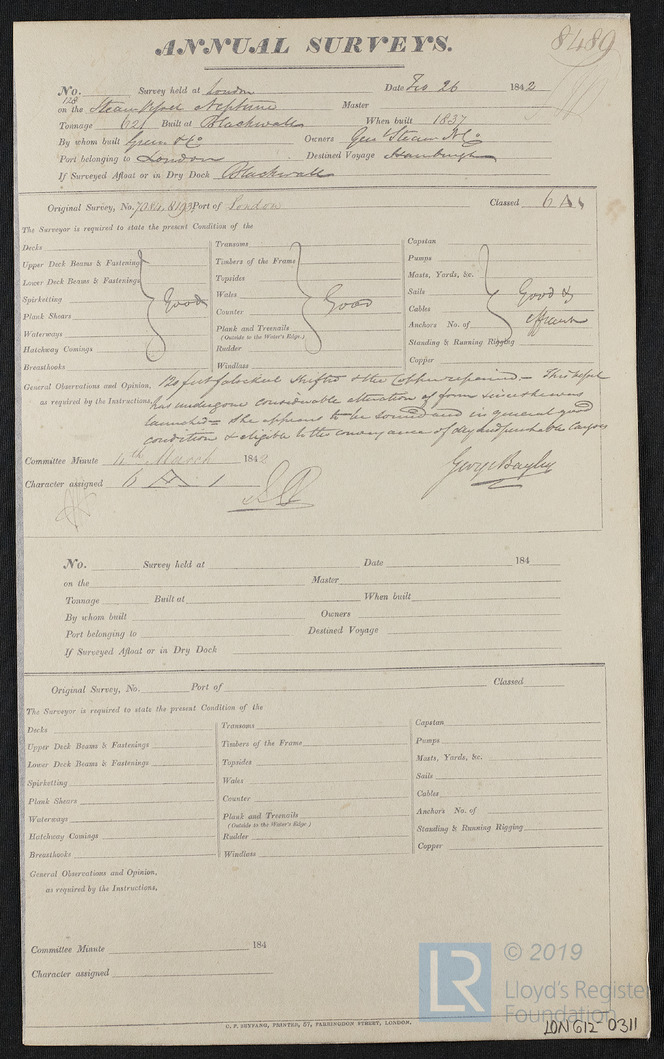 8489
ANNUAL SURVEYS.
No. 128 Survey held at London Date Feb 26 1842
on the Steam Vessel Neptune Master
Tonnage 621 Built at Blackwall When built 1837
By whom built Green & Co Owners Genl Steam N. Co
Port belonging to London Destined Voyage Hamburgh
If Surveyed Afloat or in Dry Dock Blackwall
Original Survey, No. 7084, 8193 Port of London Classed 6 A 1
The Surveyor is required to state the present Condition of the
Decks Transoms Capstan
Upper Deck Beams & Fastenings Timbers of the Frame Pumps
Lower Deck Beams & Fastenings Topsides Masts, Yards, &c.
Spirketting Good Wales Good Sails Good &
Plank Shears Counter Cables
Waterways Plank and Treenails Anchors No. of efficient
(Outside to the Water's Edge.)
Hatchway Comings Rudder Standing & Running Rigging
Breasthooks Windlass Copper
General Observations and Opinion, 120 feet of shifted & the Copper repaired - This vessel
as required by the Instructions, has undergone considerable alteration of form since she was
launched - She appears to be sound and in general good
condition & eligible to the conveyance of dry and perishable Cargoes
Committee Minute 4th March 1842
George Bayley
Character assigned 6 A 1
No. Survey held at Date 184
on the Master
Tonnage Built at When built
By whom built Owners
Port belonging to Destined Voyage
If Surveyed Afloat or in Dry Dock
Original Survey, No. Port of Classed
The Surveyor is required to state the present Condition of the
Decks Transoms Capstan
Upper Deck Beams & Fastenings Timbers of the Frame Pumps
Lower Deck Beams & Fastenings Topsides Masts, Yards, &c.
Spirketting Wales Sails
Plank Shears Counter Cables
Waterways Plank and Treenails Anchors No. of
(Outside to the Water's Edge.)
Hatchway Comings Rudder Standing & Running Rigging
Breasthooks Windlass Copper
General Observations and Opinion,
as required by the Instructions,
Committee Minute 184
Character assigned
LR
© 2019
Lloyd's Register
Foundation
C. F. SEYFANG, PRINTED, 57, FARRINGDON STREET, LONDON.
LON612-0311